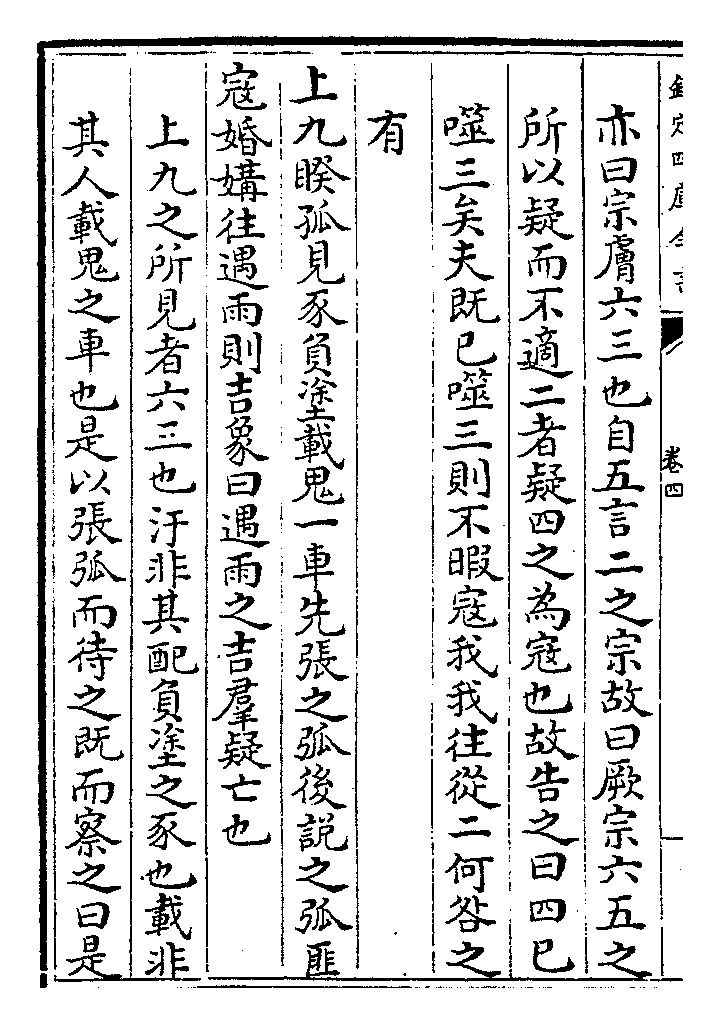 欽定四庫全書
卷四
亦曰宗膚六三也自五言二之宗故曰厥宗六五之
所以疑而不適二者疑四之為寇也故告之曰四已
噬三矣夫既已噬三則不暇寇我我往從二何咎之
有
上九睽孤見豕負塗載鬼一車先張之弧後說之弧匪
寇婚媾往遇雨則吉象曰遇雨之吉羣疑亡也
上九之所見者六三也汙非其配負塗之豕也載非
其人載鬼之車也是以張弧而待之既而察之曰是